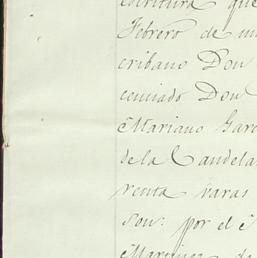 escritura que
Febrero de mi
cribano Don
cenciado Don
Mariano Garc
de la Candela
renta varas
Son: por el
Martinez de